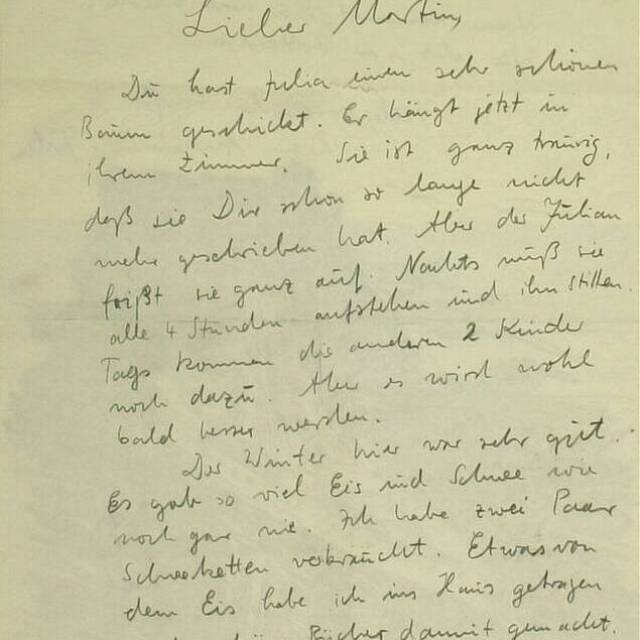 Lieber Martin,
Du hast Julia einen sehr schönen
Baum geschickt. Er hängt jetzt in
ihrem Zimmer. Sie ist ganz traurig,
daß sie Dir schon so lange nicht
mehr geschrieben hat. Aber der Julian
frißt sie ganz auf. Nachts muß sie
alle 4 Stunden aufstehen und ihn stillen.
Tags kommen die anderen 2 Kinder
noch dazu. Aber es wird wohl
bald besser werden.
Der Winter hier war sehr gut.
Es gab so viel Eis und Schnee wie
noch gar nie. Ich habe zwei Paar
Schneeketten verbraucht. Etwas von
dem Eis habe ich ins Haus getragen
Bücher damit gemacht.